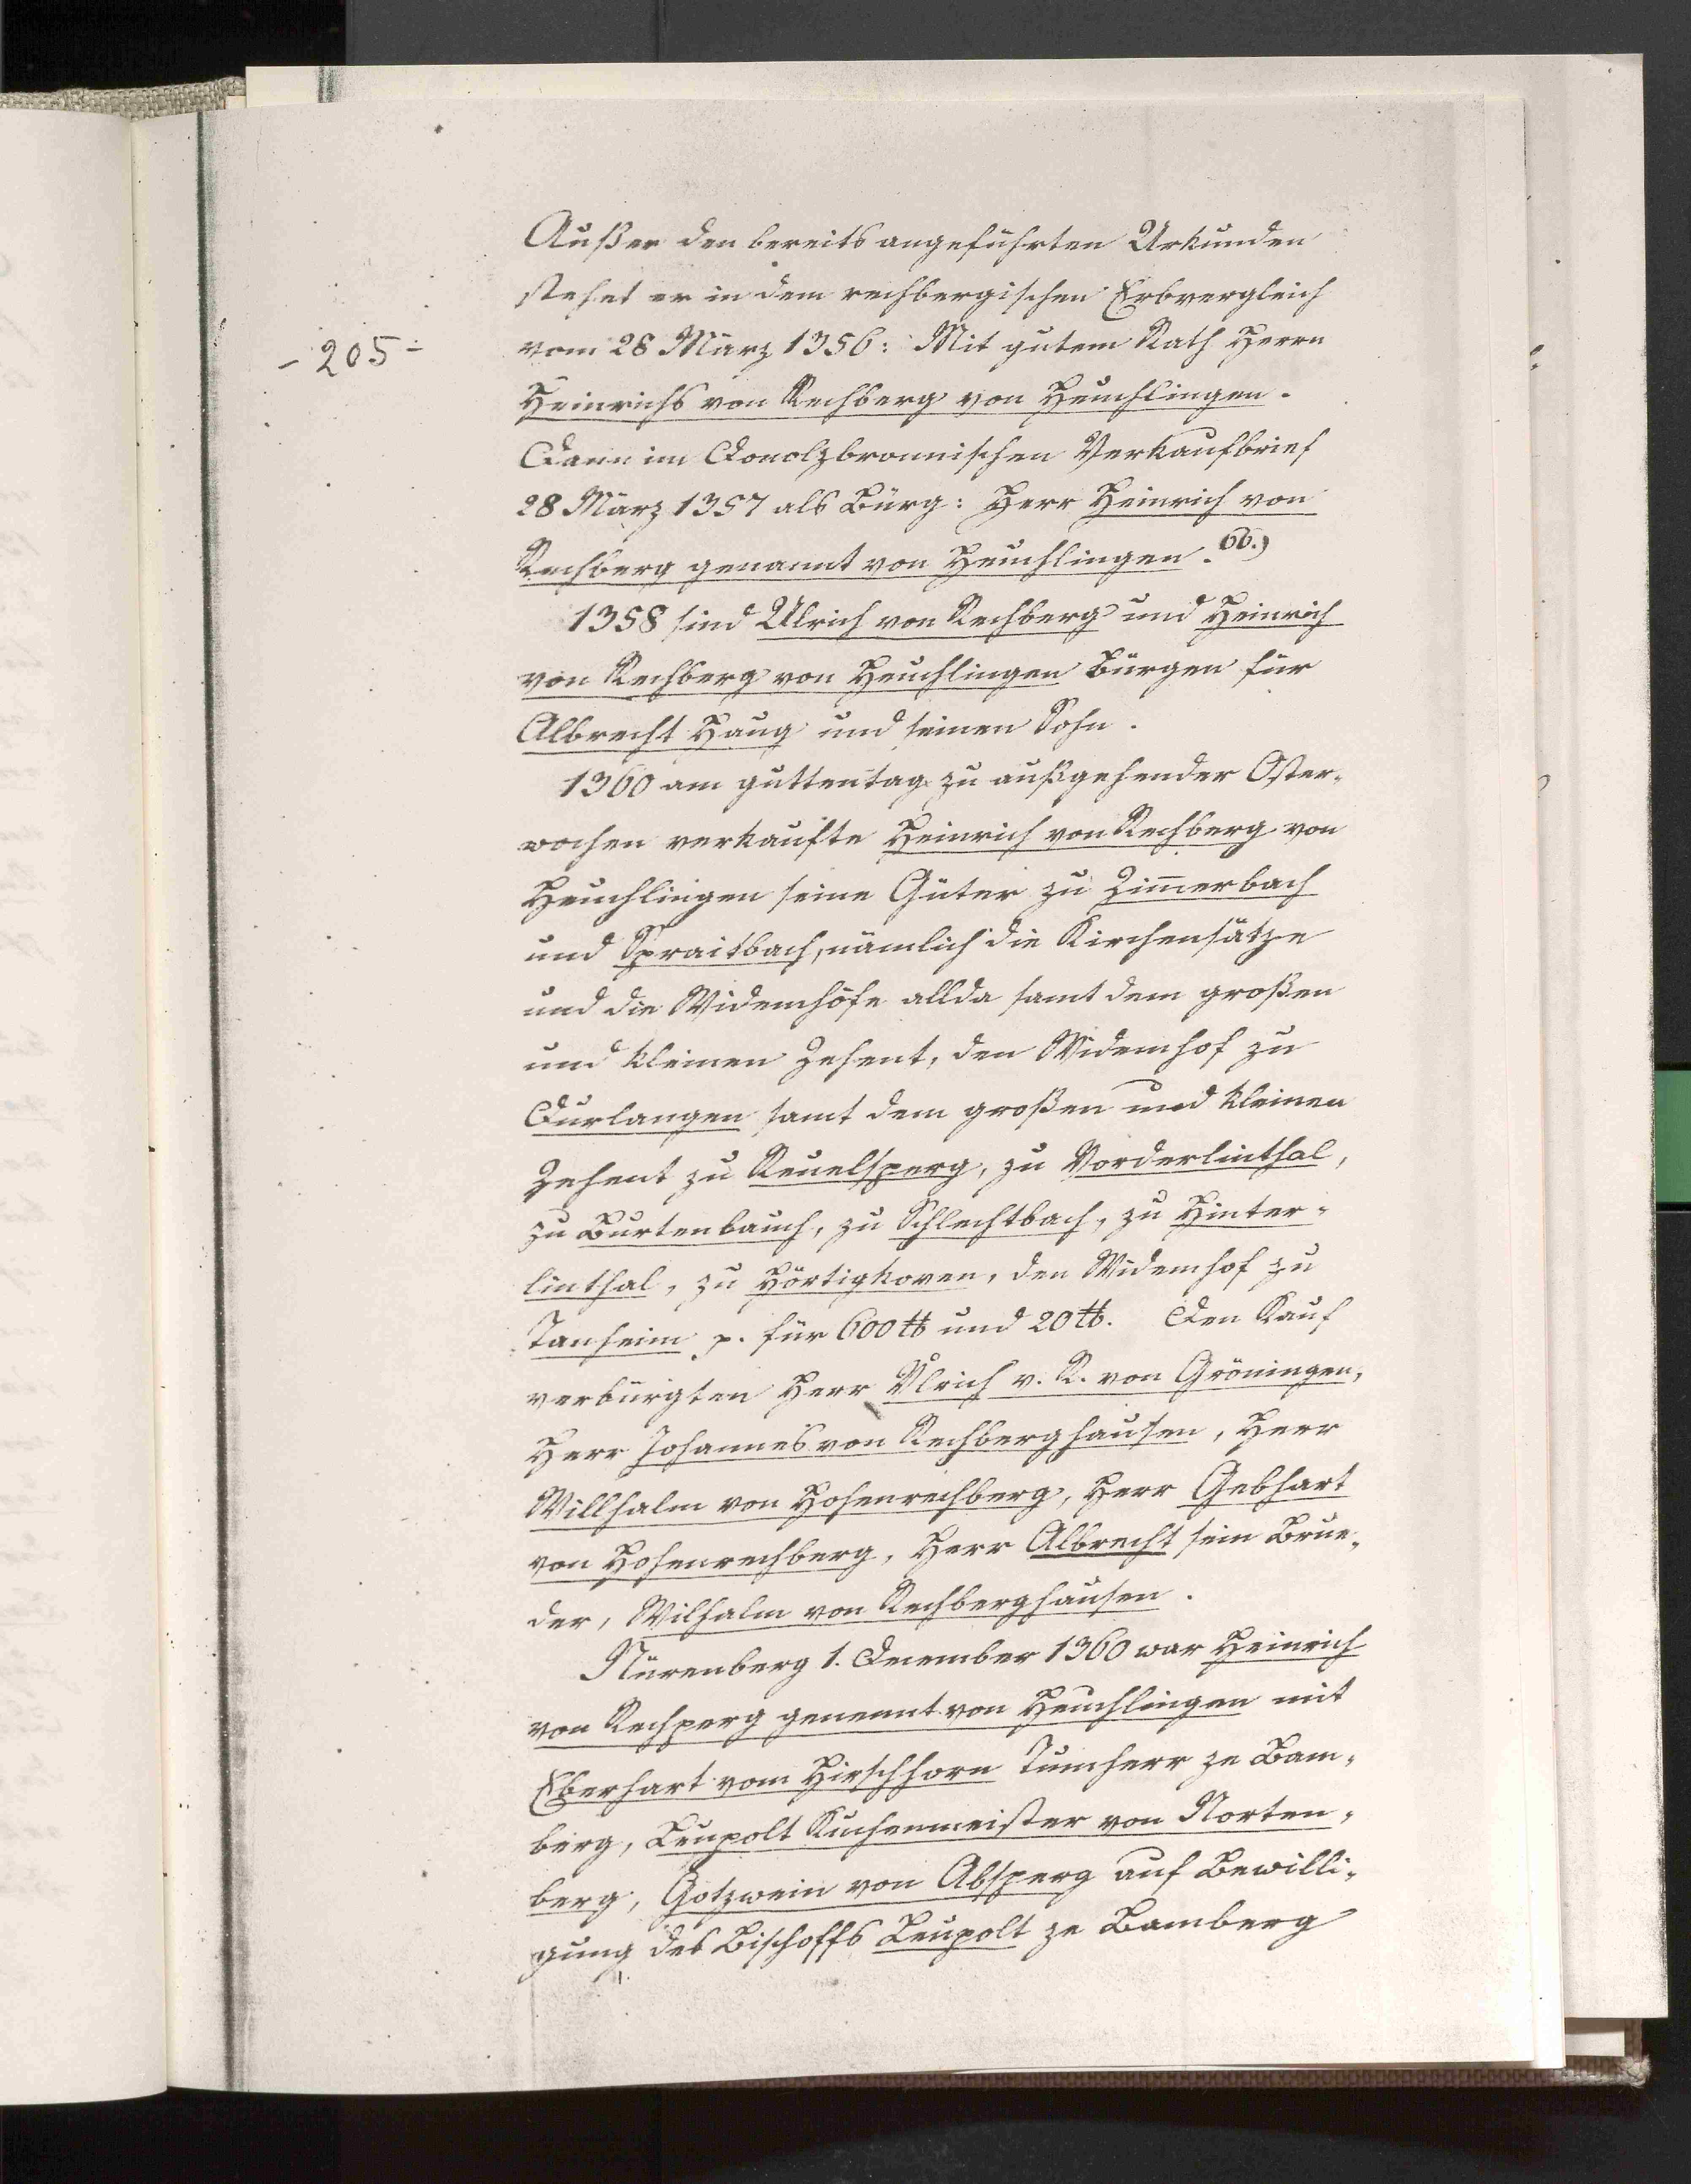 Außer den bereits angeführten Urkunden
stehet er in dem rechbergischen Erbvergleich
- 205 -
vom 28 März 1356: Mit gutem Rath Herrn
Heinrichs von Rechberg von Heuchlingen.
Dann im Donolzbronnischen Verkaufbrief
28 März 1357 als Bürg: Herr Heinrich von
Rechberg genannt von Heuchlingen. 66.)
1358 sind Ulrich von Rechberg und Heinrich
von Rechberg von Heuchlingen Bürgen für
Albrecht Haug und seinen Sohn.
1360 am guttentag zu außgehender Oster-
wochen verkaufte Heinrich von Rechberg von
Heuchlingen seine Güter zu Zim̄erbach
und Spraitbach, nämlich die Kirchensätze
und die Widemhöfe allda samt dem großen
und kleinen Zehent, den Widemhof zu
Durlangen samt dem großen und kleinen
Zehent zu Reuelsperg, zu Vorderlinthal,
zu Burtenbauch, zu Schlechtbach, zu Hinter-
linthal, zu Hörtigkoven, den Widemhof zu
Tanheim p. für 600 ℔ und 20 ℔. Den Kauf
verbürgten Herr Ulrich v. R. von Gröningen,
Herr Johannes von Rechberghausen, Herr
Willhalm von Hohenrechberg, Herr Gebhart
von Hohenrechberg, Herr Albrecht sein Brue-
der, Wilhalm von Rechberghausen.
Nürenberg 1. December 1360 war Heinrich
von Rechperg genennt von Heuchlingen mit
Eberhart vom Hirschhorn Tumherr ze Bam-
berg, Leupolt Kuchenmeister von Norten-
berg, Gotzwein von Absperg auf Bewilli-
gung des Bischoffs Leupolt ze Bamberg